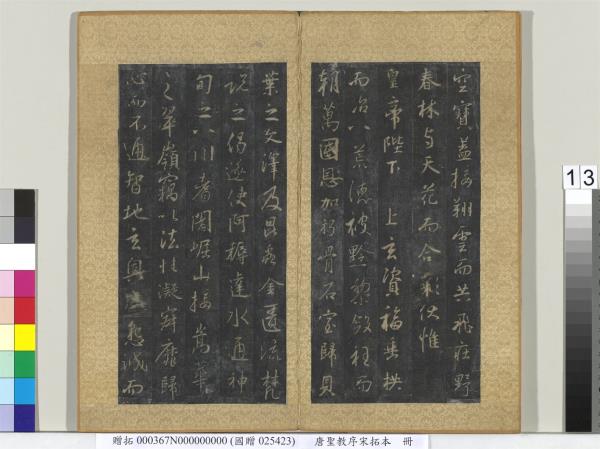 空寶蓋接翔雲而共飛莊野
春林与天花而合彩伏惟
皇帝陛下 上玄資福垂拱
而治八荒德被黔黎斂衽而
朝萬國恩加朽骨石室歸貝
葉之文澤及昆蟲金匱流梵
說之偈遂使阿耨達水通神
甸之八川耆闍崛山接嵩華
之翠嶺竊以法性凝寂靡歸
心而不通智地玄奧感懇誠而
13
贈拓 000367N000000000 (國贈 025423) 唐聖教序宋拓本 冊